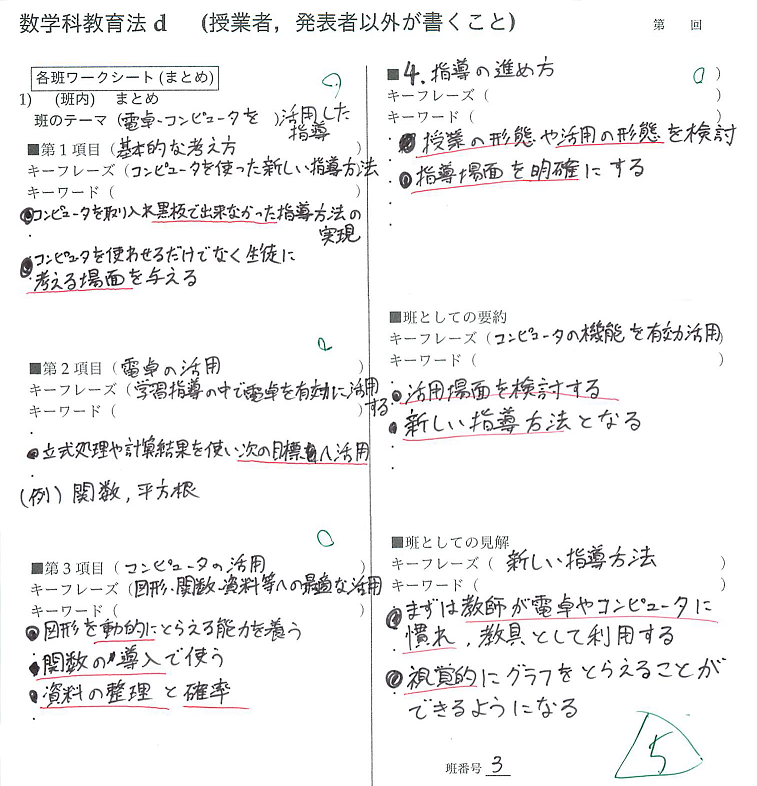 数学科教育法 d (授業者，発表者以外が書くこと)
第 回
各班ワークシート (まとめ)
1) (班内) まとめ
班のテーマ (電卓・コンピュータを )活用した
指導
■第1項目 (基本的な考え方 )
キーフレーズ (コンピュータを使った新しい指導方法
キーワード ( )
コンピュータを取り入れ黒板で出来なかった指導方法の
実現
コンピュータを使わせるだけでなく生徒に
考える場面を与える
■第2項目 (電卓の活用 )
キーフレーズ (学習指導の中で電卓を有効に活用
する
キーワード ( )
立式処理や計算結果を使い次の目標へ活用
(例) 関数, 平方根
■第3項目 (コンピュータの活用 )
キーフレーズ (図形・関数・資料等への最適な活用
キーワード ( )
図形を動的にとらえる能力を養う
関数の導入で使う
資料の整理と確率
■4. 指導の進め方 )
キーフレーズ ( )
キーワード ( )
授業の形態や活用の形態を検討
指導場面を明確にする
■班としての要約
キーフレーズ (コンピュータの機能を有効活用)
キーワード ( )
活用場面を検討する
新しい指導方法となる
■班としての見解
キーフレーズ ( 新しい指導方法 )
キーワード ( )
まずは教師が電卓やコンピュータに
慣れ, 教具として利用する
視覚的にグラフをとらえることが
できるようになる
5
班番号 3